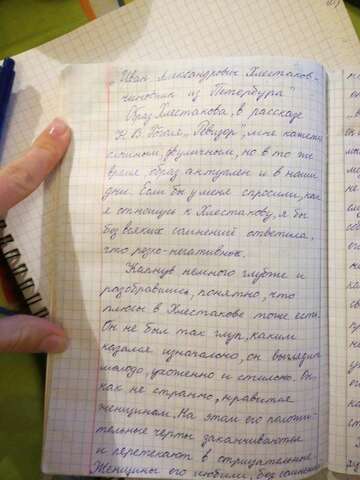 Иван Александрович Хлестаков -
чиновник из Петербурга"
Образ Хлестакова, в рассказе
Н. В. Гоголя „Ревизор", мне кажется
двуличным, но в то же
время образ актуален и в наши
дни. Если бы у меня спросили, как
я отношусь к Хлестакову, я бы
без всяких сомнений ответила,
что резко-негативно.
Копнув немного глубже и
разобравшись, понятно, что
плюсы в Хлестакове тоже есть.
Он не был так глуп, каким
казался изначально, он выглядит
молодо, ухоженно и стильно. Он,
как не странно, нравится
женщинам. На этом его положи-
тельные черты заканчиваются
и перетекают в отрицательные.
Женщины его любили, без сомнений